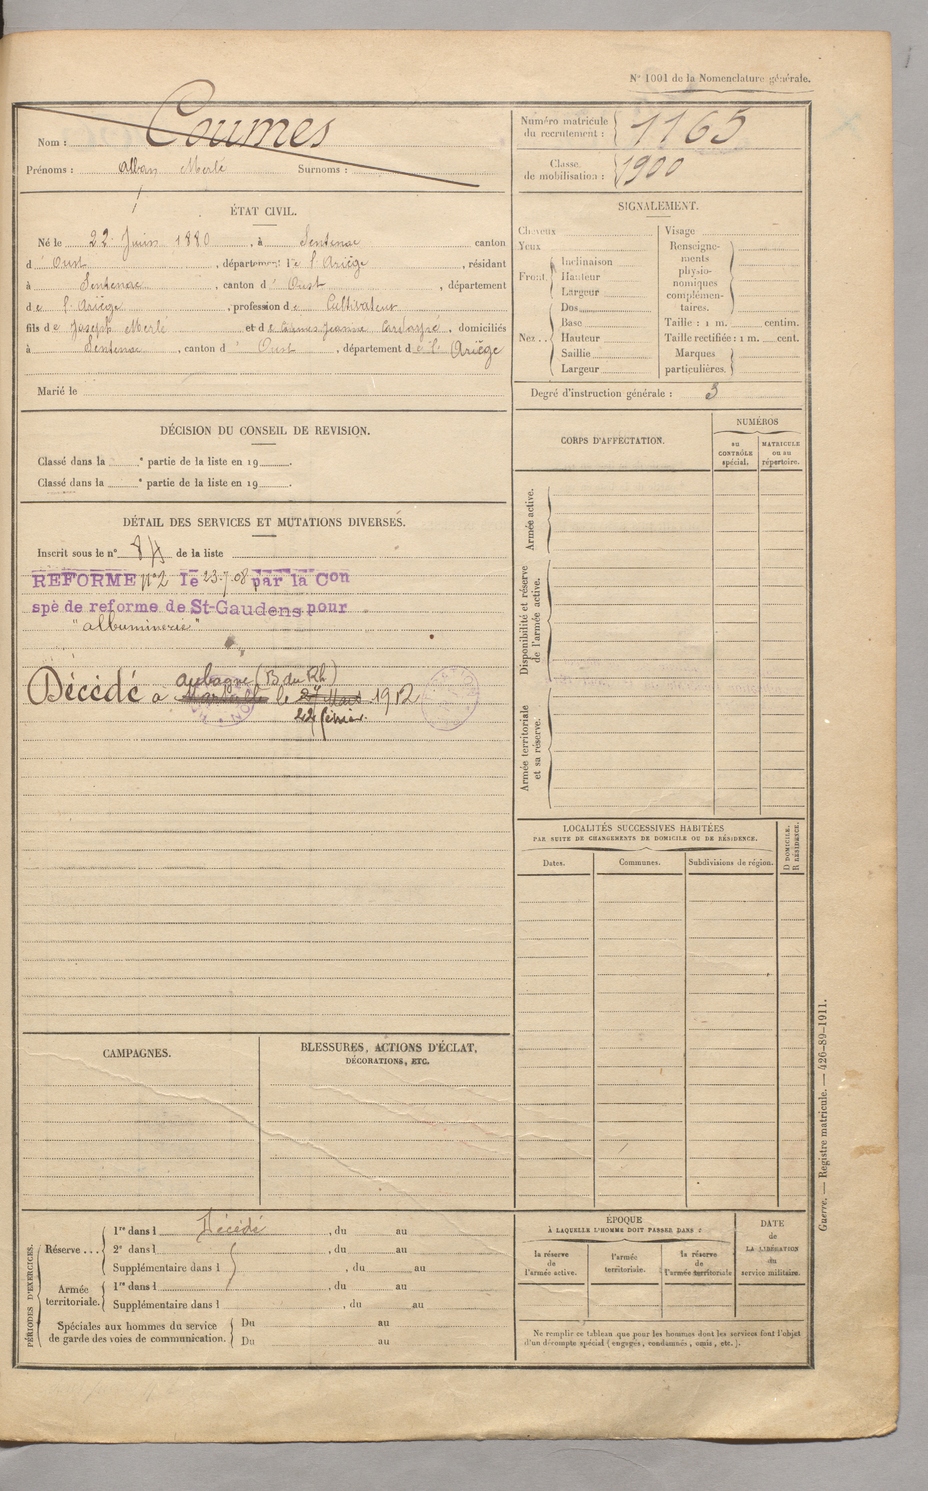 N° 1001 de la Nomenclature générale.
Nom : Coumes
Prénoms : Alban Merle Surnoms :
Numéro matricule du recrutement : 1165
Classe de mobilisation : 1900
ÉTAT CIVIL.
Né le 22 Juin 1880, à Sentenac canton
d' Oust, département de l'Ariège, résidant
à Sentenac, canton d' Oust, département
de l'Ariège, profession de Cultivateur
fils de Joseph Merle et de Jeanne, domiciliés
à Sentenac, canton d' Oust, département de l'Ariège
Marié le
SIGNALEMENT.
Cheveux
Yeux
Front. Inclinaison
Hauteur
Largeur
Nez. . Dos
Base
Hauteur
Saillie
Largeur
Visage
Renseigne-
ments
physio-
nomiques
complémen-
taires.
Taille : 1 m. centim.
Taille rectifiée : 1 m. cent.
Marques
particulières.
Degré d'instruction générale : 3
DÉCISION DU CONSEIL DE REVISION.
Classé dans la e partie de la liste en 19 .
Classé dans la e partie de la liste en 19 .
DÉTAIL DES SERVICES ET MUTATIONS DIVERSES.
Inscrit sous le n° de la liste
REFORME N°2 le 23-7-08 par la Con
spè de reforme de St-Gaudens pour
"albuminerie"
Aubagne (B. du Rh)
Décédé à Marseille le 27 Mars 1912
22 février.
CORPS D'AFFECTATION.
NUMÉROS
au CONTRÔLE spécial.
MATRICULE ou au répertoire.
Armée active.
Disponibilité et réserve de l'armée active.
Armée territoriale et sa réserve.
LOCALITÉS SUCCESSIVES HABITÉES
PAR SUITE DE CHANGEMENTS DE DOMICILE OU DE RÉSIDENCE.
Dates.
Communes.
Subdivisions de région.
D DOMICILE.
R RÉSIDENCE.
CAMPAGNES.
BLESSURES, ACTIONS D'ÉCLAT,
DÉCORATIONS, ETC.
PÉRIODES D'EXERCICES.
Réserve . . . 1re dans l Décédé, du au
2e dans l , du au
Supplémentaire dans l , du au
Armée territoriale. 1re dans l , du au
Supplémentaire dans l , du au
Spéciales aux hommes du service
de garde des voies de communication.
Du au
Du au
ÉPOQUE
À LAQUELLE L'HOMME DOIT PASSER DANS :
la réserve de l'armée active.
l'armée territoriale.
la réserve de l'armée territoriale
DATE
de
LA LIBÉRATION
du
service militaire.
Ne remplir ce tableau que pour les hommes dont les services font l'objet
d'un décompte spécial (engagés, condamnés, omis, etc.).
Guerre. — Registre matricule. — 426-89-1911.